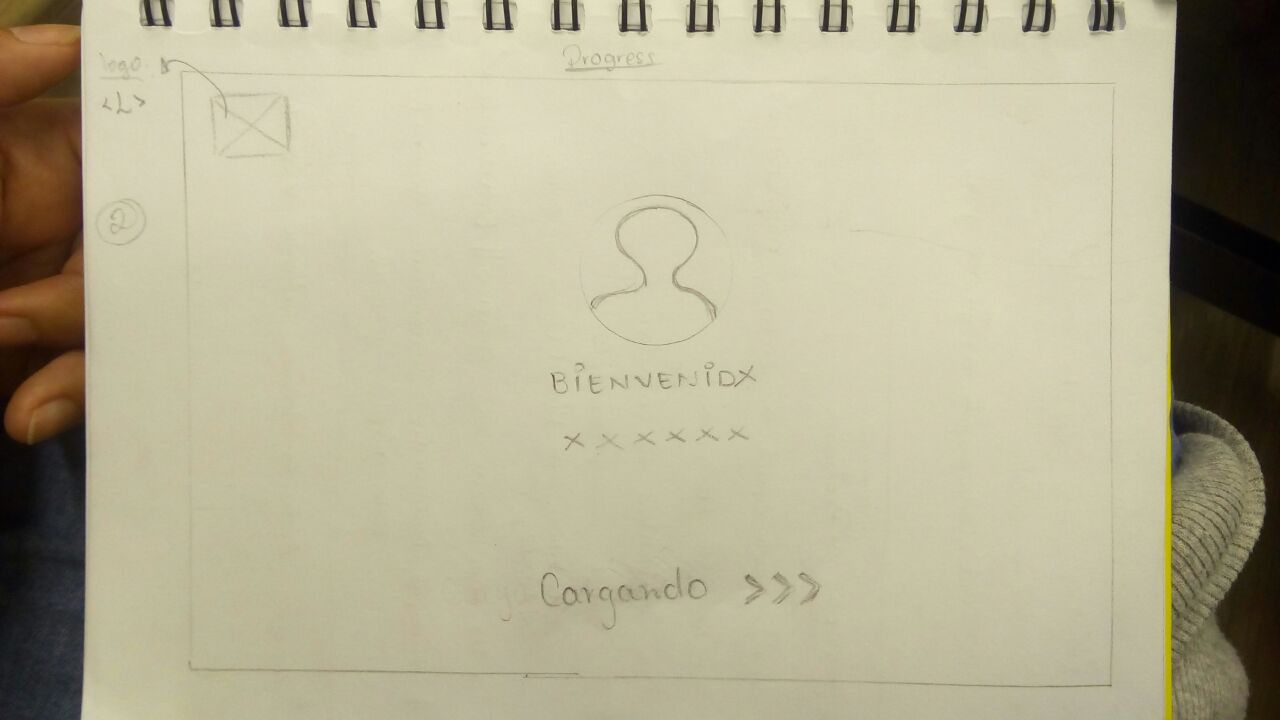 Progress
logo
<L>
2
BIENVENIDX
x x x x x x
Cargando >>>